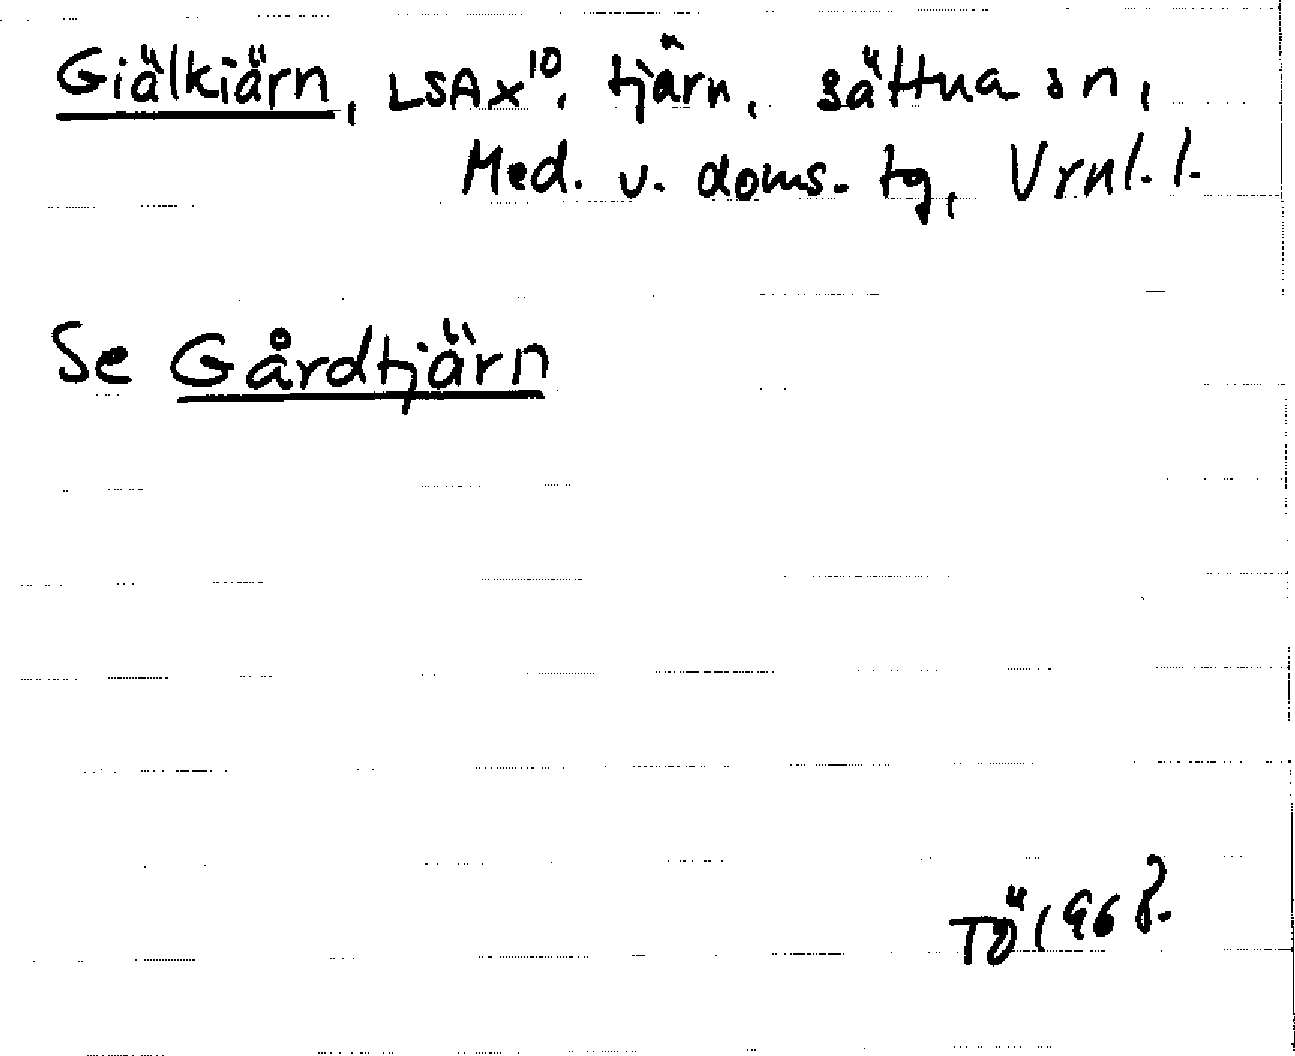 Giälkiärn, LSA X¹⁰. tjärn, Sättna sn,
Med. v. doms. tg, Vrnl. l.
Se Gårdtjärn
TÖ 1968.